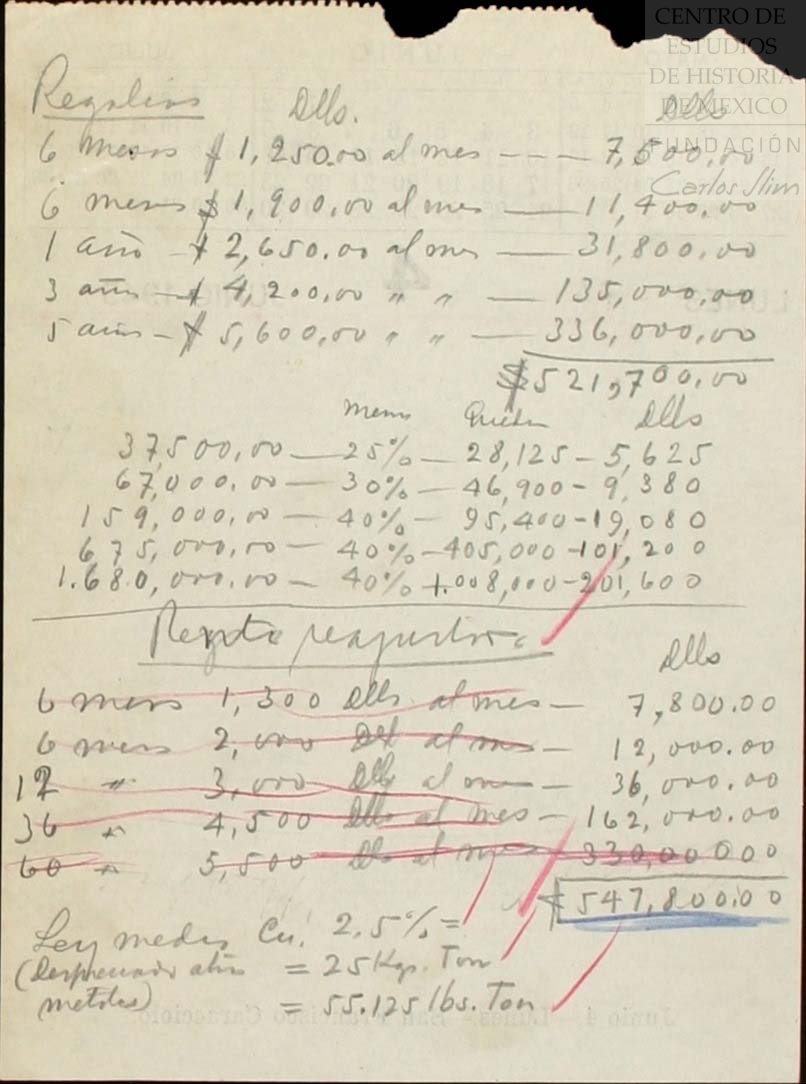 CENTRO DE
ESTUDIOS
DE HISTORIA
DE MEXICO
FUNDACIÓN
Carlos Slim
Regalias Dlls. Dlls
6 meses $ 1,250.00 al mes --- 7,500.00
6 meses $ 1,900,00 al mes — 11,400.00
1 año — $ 2,650.00 al mes — 31,800,00
3 años — $ 4,200,00 " " — 135,000,00
5 años — $ 5,600,00 " " — 336,000,00
$521,700,00
menos Quedan Dlls
37,500,00 — 25% — 28,125 — 5,625
67,000.00 — 30% — 46,900 - 9,380
159,000,00 — 40% — 95,400 - 19,080
675,000,00 — 40% — 405,000 - 101,200
1.680,000,00 — 40% 1.008,000 - 201,600
Renta reajustada
Dlls
6 meses 1,300 Dlls al mes — 7,800.00
6 meses 2,000 Dlls al mes — 12,000.00
12 " 3,000 Dlls al mes — 36,000.00
36 " 4,500 Dlls al mes — 162,000.00
60 " 5,500 Dlls al mes 330,00000
$ 547,800.00
Ley media Cu. 2.5% =
(Despreciando otros = 25 Kgs. Ton
metales) = 55.125 lbs. Ton
Junio 4 - Lunes - San Francisco Caracciolo